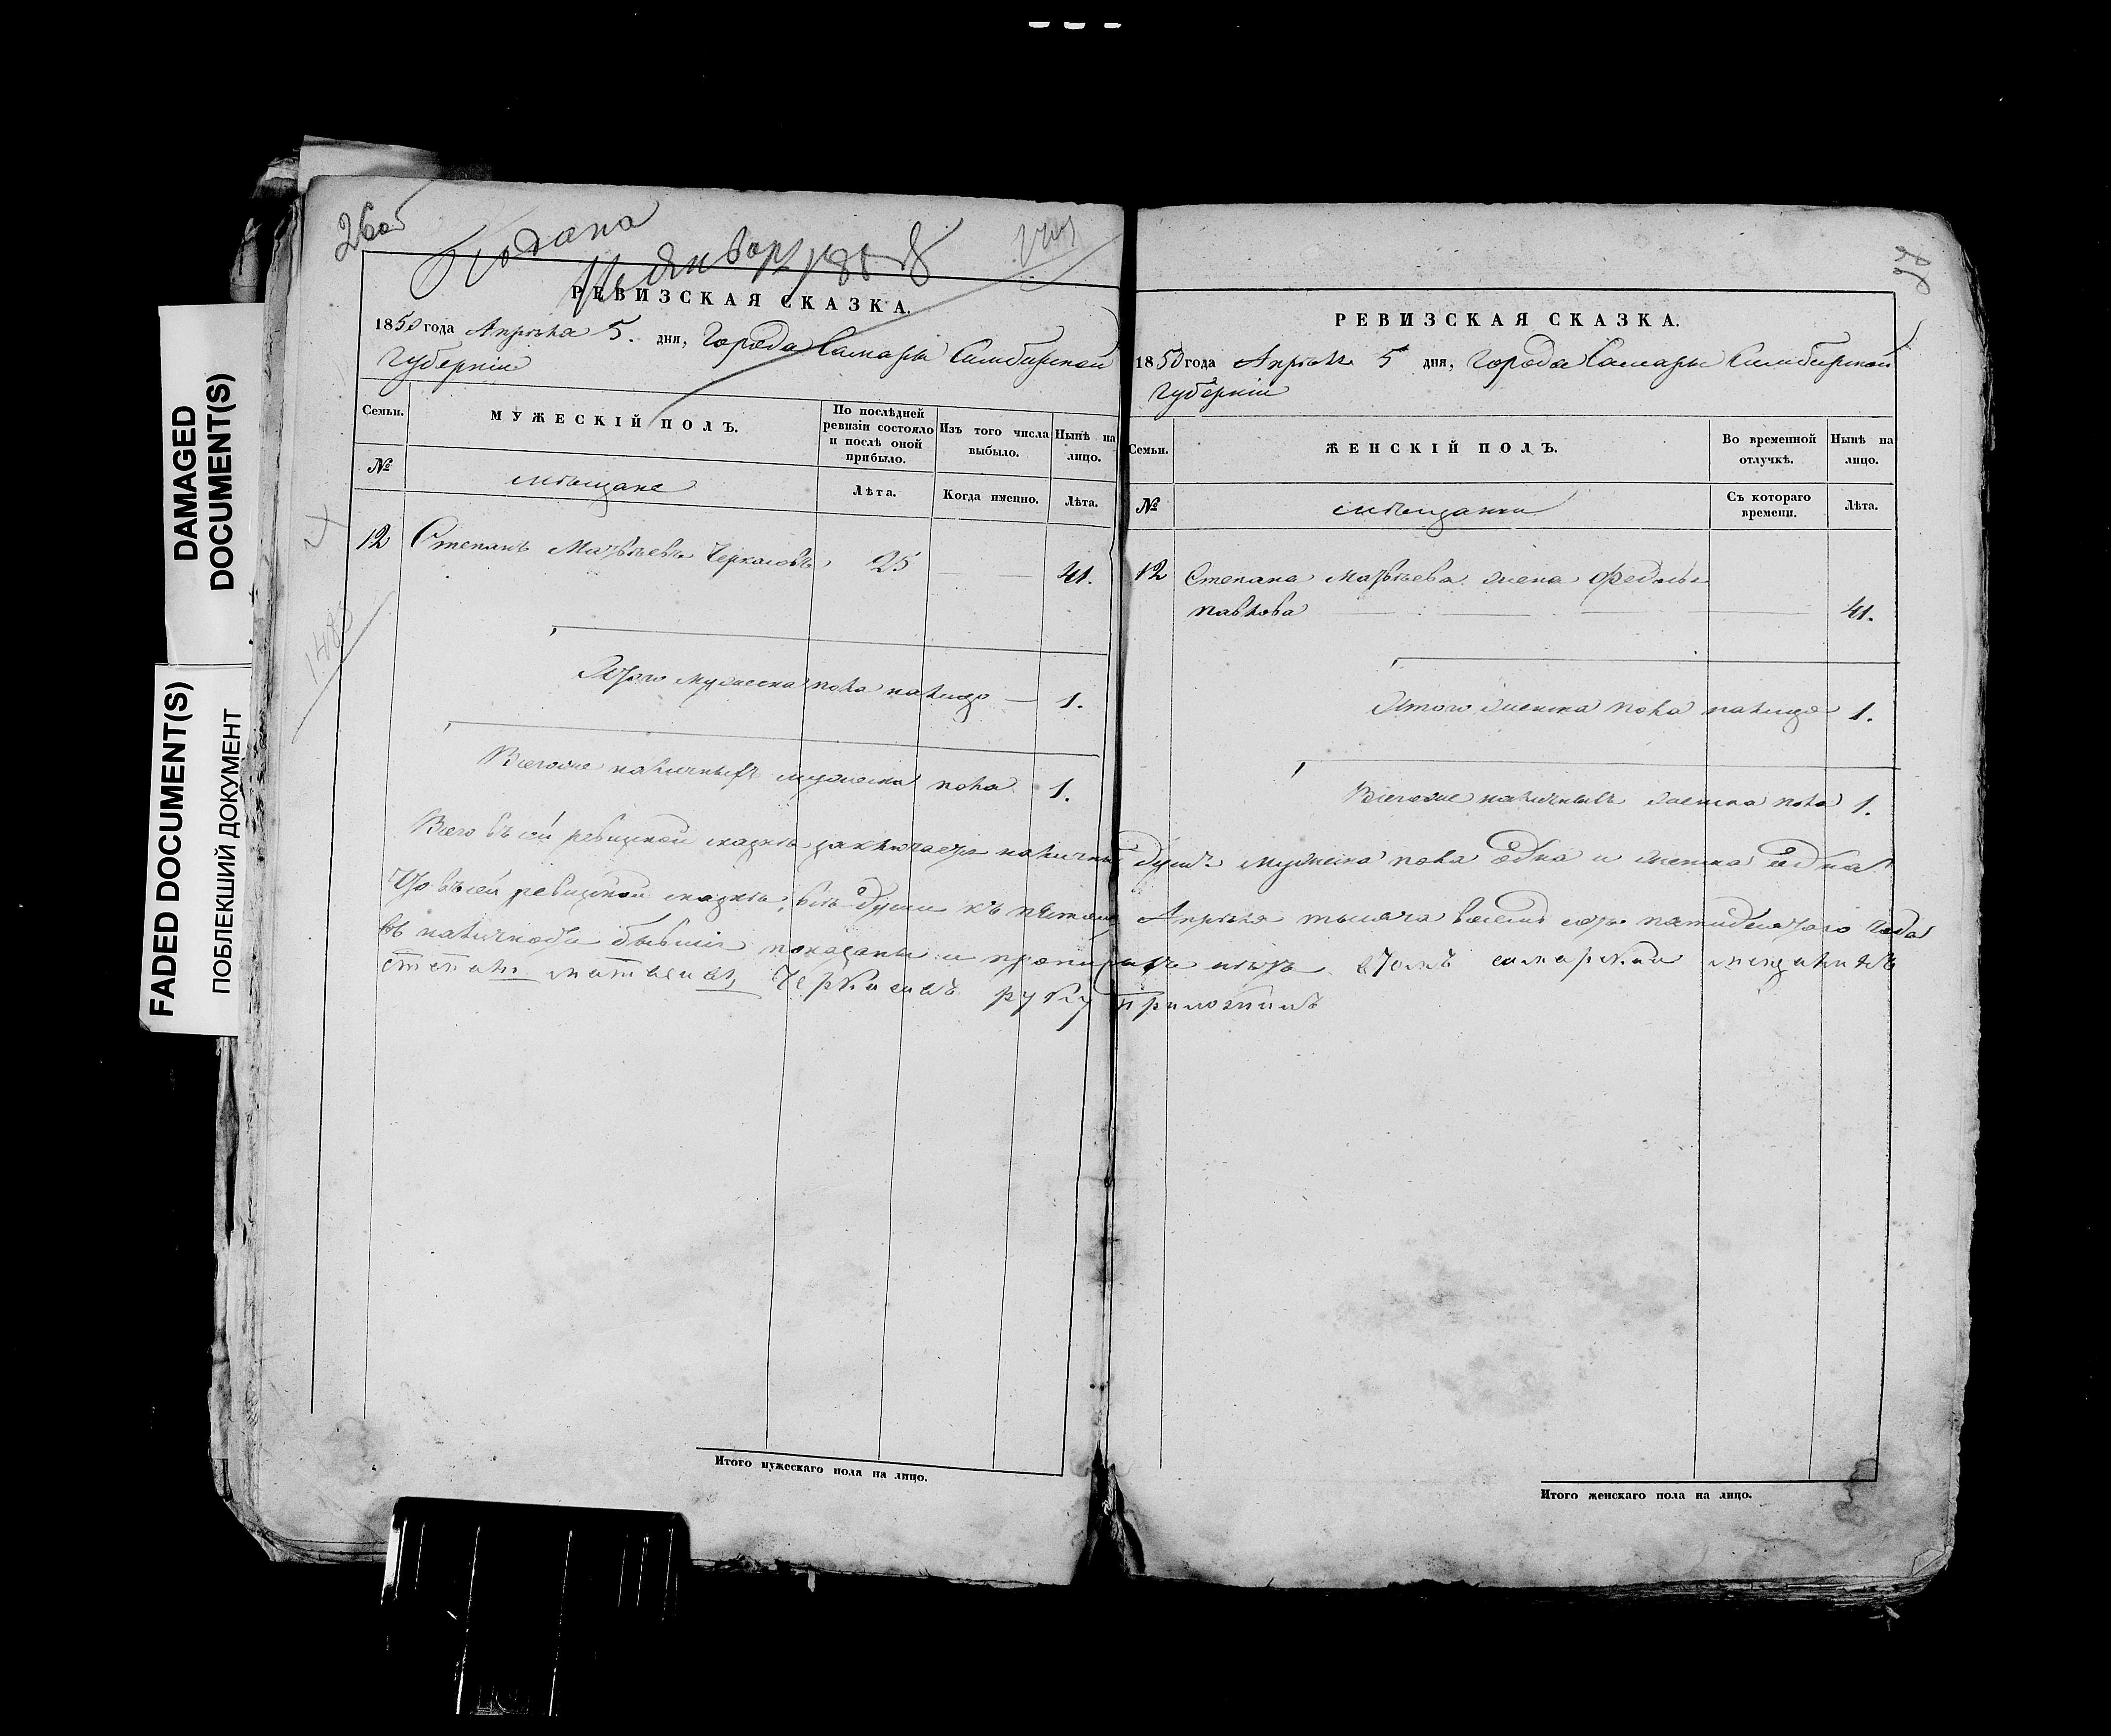 DAMAGED
DOCUMENT(S)
FADED DOCUMENT(S)
ПОБЛЕКШИЙ ДОКУМЕНТ
26об
Подана
Января
РЕВИЗСКАЯ СКАЗКА.
1850 года Апрѣля 5. дня, Города Самары Симбирской
губерніи
Семьи.
МУЖЕСКІЙ ПОЛЪ.
По послѣдней
ревизіи состояло
и послѣ оной
прибыло.
Изъ того числа
выбыло.
Нынѣ на
лицо.
№
мѣщане
Лѣта.
Когда именно.
Лѣта.
12 Степанъ Матвѣевъ Черкасовъ 25 41.
Итого мужеска пола налицо — 1.
Всегоже наличныхъ мужеска пола 1.
РЕВИЗСКАЯ СКАЗКА.
1850 года Апрѣля 5 дня, Города Самары Симбирской
губерніи
Семьи.
ЖЕНСКІЙ ПОЛЪ.
Во временной
отлучкѣ.
Нынѣ на
лицо.
№
мѣщанки
Съ котораго
времени.
Лѣта.
12 Степана Матвѣева жена Федосья
Павлова 41.
Итого женска пола налицо 1.
Всегоже наличныхъ женска пола 1.
Всего въ сей ревизской сказкѣ заключается наличныхъ душъ мужеска пола одна и женска одна
Что въ сей ревизской сказкѣ, всѣ души къ пятому Апрѣля тысяча восемь сотъ пятидесятаго года
въ наличности бывшія показаны и прописныхъ нѣтъ въ томъ самарской мещанинъ
степанъ матвеивъ Черкасавъ руку приложилъ
Итого мужескаго пола на лицо.
Итого женскаго пола на лицо.